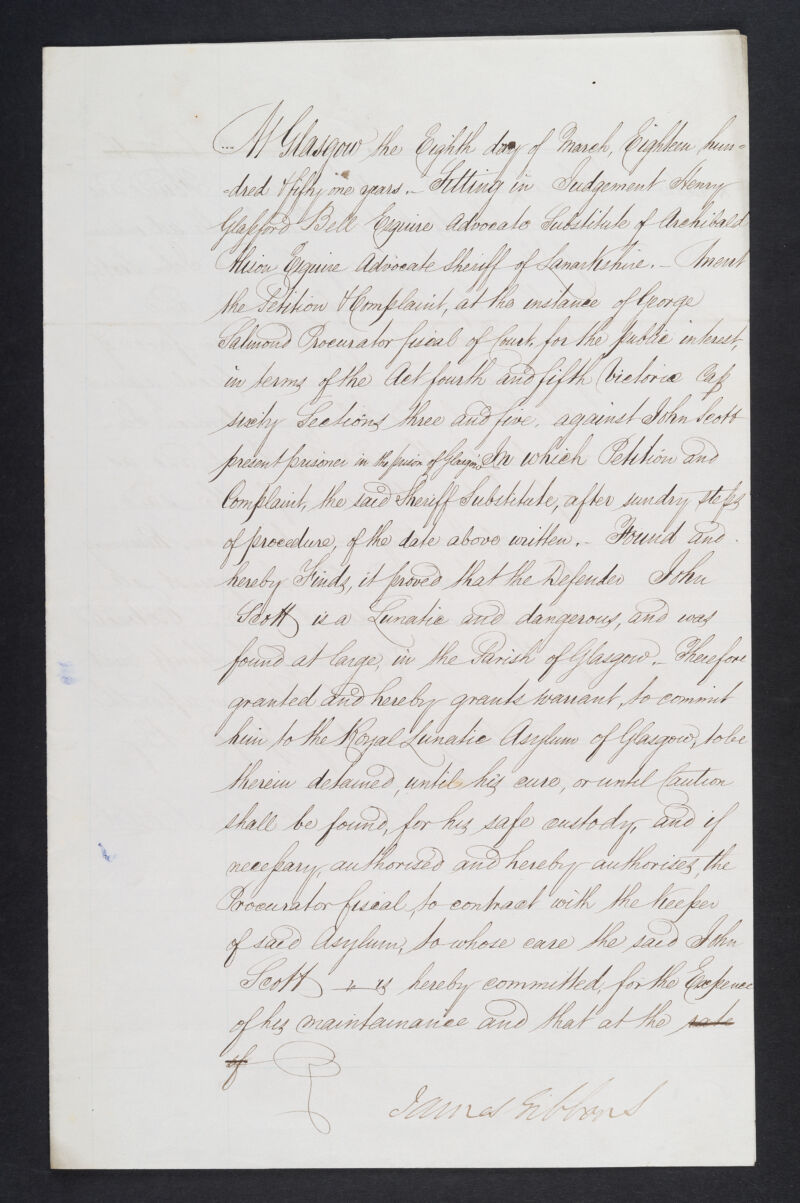 At Glasgow the Eighth day of March, Eighteen hun-
-dred & fifty one years. – Sitting in Judgement Henry
Glassford Bell Esquire Advocate Substitute of Archibald
Alison Esquire Advocate Sheriff of Lanarkshire. – Anent
the Petition & Complaint, at the instance of George
Salmond Procurator fiscal of Court, for the public interest,
in terms of the Act fourth and fifth Victoria Cap
sixty Sections three and five, against John Scott
present prisoner in the prison of Glasgow, In which Petition and
Complaint, the said Sheriff Substitute, after sundry steps
of procedure, of the date above written. – Found and
hereby Finds, it proved that the Defender John
Scott is a Lunatic and dangerous, and was
found at large, in the Parish of Glasgow. – Therefore
granted and hereby grants warrant, to commit
him to the Royal Lunatic Asylum of Glasgow, to be
therein detained, until his cure, or until Caution
shall be found, for his safe custody, and if
necessary, authorised and hereby authorises, the
Procurator fiscal, to contract with the Keeper
of said Asylum, to whose care the said John
Scott is hereby committed, for the Expence
of his maintainance and that at the rate
of
James Gibbons